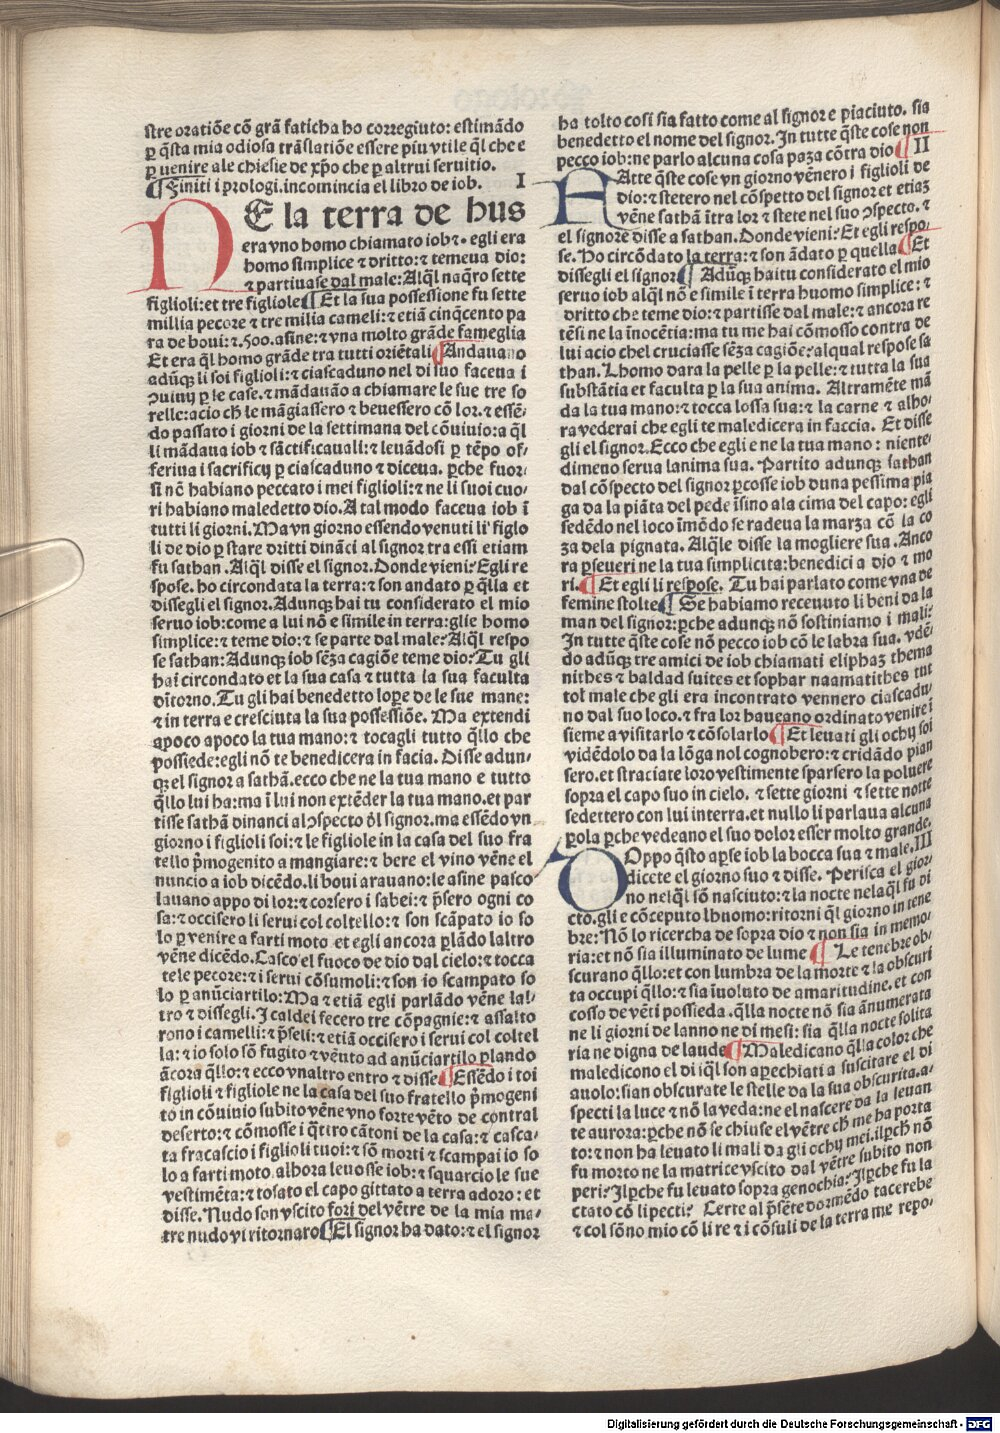 stre oratiõe cõ grã faticha ho corregiuto: estimãdo
ꝑ q̃sta mia odiosa trãslatiõe essere piu vtile q̃l che e
ꝑ uenire ale chiesie de xp̃o che ꝑ altrui seruitio.
¶ Finiti i prologi. incomincia el libro de iob. I
NE la terra de hus
era vno homo chiamato iob⁊. egli era
homo simplice ⁊ dritto: ⁊ temeua dio:
⁊ partiuase dal male: Alq̃l naq̃ro sette
figlioli: et tre figliole ¶ Et la sua possessione fu sette
millia pecore ⁊ tre milia cameli: ⁊ etiã cinq̃cento pa
ra de boui: ⁊ .500. asine: ⁊ vna molto grãde fameglia
Et era q̃l homo grãde tra tutti oriẽtali ¶ Andauano
adũq̃ li soi figlioli: ⁊ ciascaduno nel di suo faceua i
ↄuiuij ꝑ le case. ⁊ mãdauão a chiamare le sue tre so
relle: acio ch̃ le mãgiassero ⁊ beuessero cõ lor. ⁊ essẽ⸗
do passato i giorni de la settimana del cõuiuio: a q̃l
li mãdaua iob ⁊ sãctificauali: ⁊ leuãdosi ꝑ tẽpo of⸗
feriua i sacrificij ꝑ ciascaduno ⁊ diceua. ꝑche fuor⸗
si nõ habiano peccato i mei figlioli: ⁊ ne li suoi cuo⸗
ri habiano maledetto dio. A tal modo faceua iob ĩ
tutti li giorni. Ma vn giorno essendo venuti li figlo
li de dio ꝑ stare dritti dinãci al signor tra essi etiam
fu sathan. Alq̃l disse el signor. Donde vieni: Egli re
spose. ho circondata la terra: ⁊ son andato ꝑ q̃lla et
dissegli el signor. Adunq̃ hai tu considerato el mio
seruo iob: come a lui nõ e simile in terra: glie homo
simplice: ⁊ teme dio: ⁊ se parte dal male? Alq̃l respo
se sathan: Adunq̃ iob sẽza cagiõe teme dio? Tu gli
hai circondato et la sua casa ⁊ tutta la sua faculta
dĩtorno. Tu gli hai benedetto loꝑe de le sue mane:
⁊ in terra e cresciuta la sua possessiõe. Ma extendi
apoco apoco la tua mano: ⁊ tocagli tutto q̃llo che
possiede: egli nõ te benedicera in facia. Disse adun⸗
q̃ el signor a sathã. ecco che ne la tua mano e tutto
q̃llo lui ha: ma ĩ lui non extẽder la tua mano. et par
tisse sathã dinanci al ↄspecto ðl signor. ma essẽdo vn
giorno i figlioli soi: ⁊ le figliole in la casa del suo fra
tello p̃mogenito a mangiare: ⁊ bere el vino vẽne el
nuncio a iob dicẽdo. li boui arauano: le asine pasco
lauano appo di lor: ⁊ corsero i sabei: ⁊ p̃sero ogni co
sa: ⁊ occisero li serui col coltello: ⁊ son scãpato io so
lo ꝑ venire a farti moto et egli ancora ꝑlãdo laltro
vẽne dicẽdo. Casco el fuoco de dio dal cielo: ⁊ tocca
te le pecore: ⁊ i serui cõsumoli: ⁊ son io scampato so
lo ꝑ anũciartilo: Ma ⁊ etiã egli parlãdo vẽne lal⸗
tro ⁊ dissegli. I caldei fecero tre cõpagnie: ⁊ assalto
rono i camelli: ⁊ p̃seli: ⁊ etiã occisero i serui col coltel
la: ⁊ io solo sõ fugito ⁊ vẽuto ad anũciartilo ꝑlando
ãcora q̃llo: ⁊ ecco vnaltro entro ⁊ disse ¶ Essẽdo i toi
figlioli ⁊ figliole ne la casa del suo fratello p̃mogeni
to in cõuiuio subito vẽne vno forte vẽto de contral
deserto: ⁊ cõmosse i q̃tro cãtoni de la casa: ⁊ casca⸗
ta fracascio i figlioli tuoi: ⁊ sõ morti ⁊ scampai io so
lo a farti moto. alhora leuosse iob: ⁊ squarcio le sue
vestimẽta: ⁊ tosato el capo gittato a terra adoro: et
disse. Nudo son vscito fori del vẽtre de la mia ma⸗
tre nudo vi ritornaro ¶ El signor ha dato: ⁊ el signor
ha tolto cosi sia fatto come al signor e piaciuto. sia
benedetto el nome del signor. In tutte q̃ste cose non
pecco iob: ne parlo alcuna cosa paza cõtra dio ¶ II
FAtte q̃ste cose vn giorno vẽnero i figlioli de
dio: ⁊ stetero nel cõspetto del signor et etiaʒ
vẽne sathã ĩtra lor ⁊ stete nel suo ↄspecto. ⁊
el signore disse a sathan. Donde vieni? Et egli respo⸗
se. Ho circõdato la terra: ⁊ son ãdato ꝑ quella ¶ Et
dissegli el signor ¶ Adũq̃ hai tu considerato el mio
seruo iob alq̃l nõ e simile ĩ terra huomo simplice: ⁊
dritto che teme dio: ⁊ partisse dal male: ⁊ ancora re
tẽsi ne la ĩnocẽtia: ma tu me hai cõmosso contra de
lui acio chel cruciasse sẽza cagiõe: alqual respose sa
than. Lhomo dara la pelle ꝑ la pelle: ⁊ tutta la sua
substãtia et faculta ꝑ la sua anima. Altramẽte mã
da la tua mano: ⁊ tocca lossa sua: ⁊ la carne ⁊ alho⸗
ra vederai che egli te maledicera in faccia. Et disse
gli el signor. Ecco che egli e ne la tua mano: niente⸗
dimeno serua lanima sua. Partito adunq̃ sathan
dal cõspecto del signor ꝑcosse iob duna pessima pia
ga da la piãta del pede ĩsino ala cima del capo: egli
sedẽdo nel loco ĩmõdo se radeua la marza cõ la co
za dela pignata. Alq̃le disse la mogliere sua. Anco
ra ꝑseueri ne la tua simplicita: benedici a dio ⁊ mo
ri. ¶ Et egli li respose. Tu hai parlato come vna de
femine stolte ¶ Se habiamo receuuto li beni da la
man del signor: ꝑche adunq̃ nõ sostiniamo i mali?
In tutte q̃ste cose nõ pecco iob cõ le labra sua. vdẽ⸗
do adũq̃ tre amici de iob chiamati eliphaʒ thema
nithes ⁊ baldad suites et sophar naamatithes tut
tol male che gli era incontrato vennero ciascadu⸗
no dal suo loco. ⁊ fra lor haueano ordinato venire ĩ
sieme a visitarlo ⁊ cõsolarlo ¶ Et leuati gli ochij soi
vidẽdolo da la lõga nol cognobero: ⁊ cridãdo pian
sero. et straciate loro vestimente sparsero la poluere
sopra el capo suo in cielo. ⁊ sette giorni ⁊ sette notte
sedettero con lui interra. et nullo li parlaua alcuna
ꝑola ꝑche vedeano el suo dolor esser molto grande.
DOppo q̃sto aꝑse iob la bocca sua ⁊ male. III
dicete el giorno suo ⁊ disse. Perisca el gior⸗
no nelq̃l sõ nasciuto: ⁊ la nocte nelaq̃l fu di
cto. gli e cõceputo lhuomo: ritorni q̃l giorno in tene
bre: Nõ lo ricercha de sopra dio ⁊ non sia in memo⸗
ria: et nõ sia illuminato de lume ¶ Le tenebre ob⸗
scurano q̃llo: et con lumbra de la morte ⁊ la obscuri
ta occupi q̃llo: ⁊ sia ĩuoluto de amaritudine. et con
cosso de vẽti possieda. q̃lla nocte nõ sia ãnumerata
ne li giorni de lanno ne di mesi: sia q̃lla nocte solita
ria ne digna de laude ¶ Maledicano q̃lla color che
maledicono el di iq̃l son aꝑechiati a suscitare el di
auolo: sian obscurate le stelle da la sua obscurita. a⸗
specti la luce ⁊ nõ la veda: ne el nascere da la leuan
te aurora: ꝑche nõ se chiuse el vẽtre ch̃ me ha porta
to: ⁊ non ha leuato li mali da gli ochij mei. ilꝑch̃ nõ
fu morto ne la matrice vscito dal vẽtre subito non
peri? Ilꝑche fu leuato sopra genochia? Ilꝑche fu la
ctato cõ li pecti? Certe al p̃sẽte dormẽdo tacerebe
⁊ col sõno mio cõ li re ⁊ i cõsuli de la terra me repo⸗
Digitalisierung gefördert durch die Deutsche Forschungsgemeinschaft - DFG